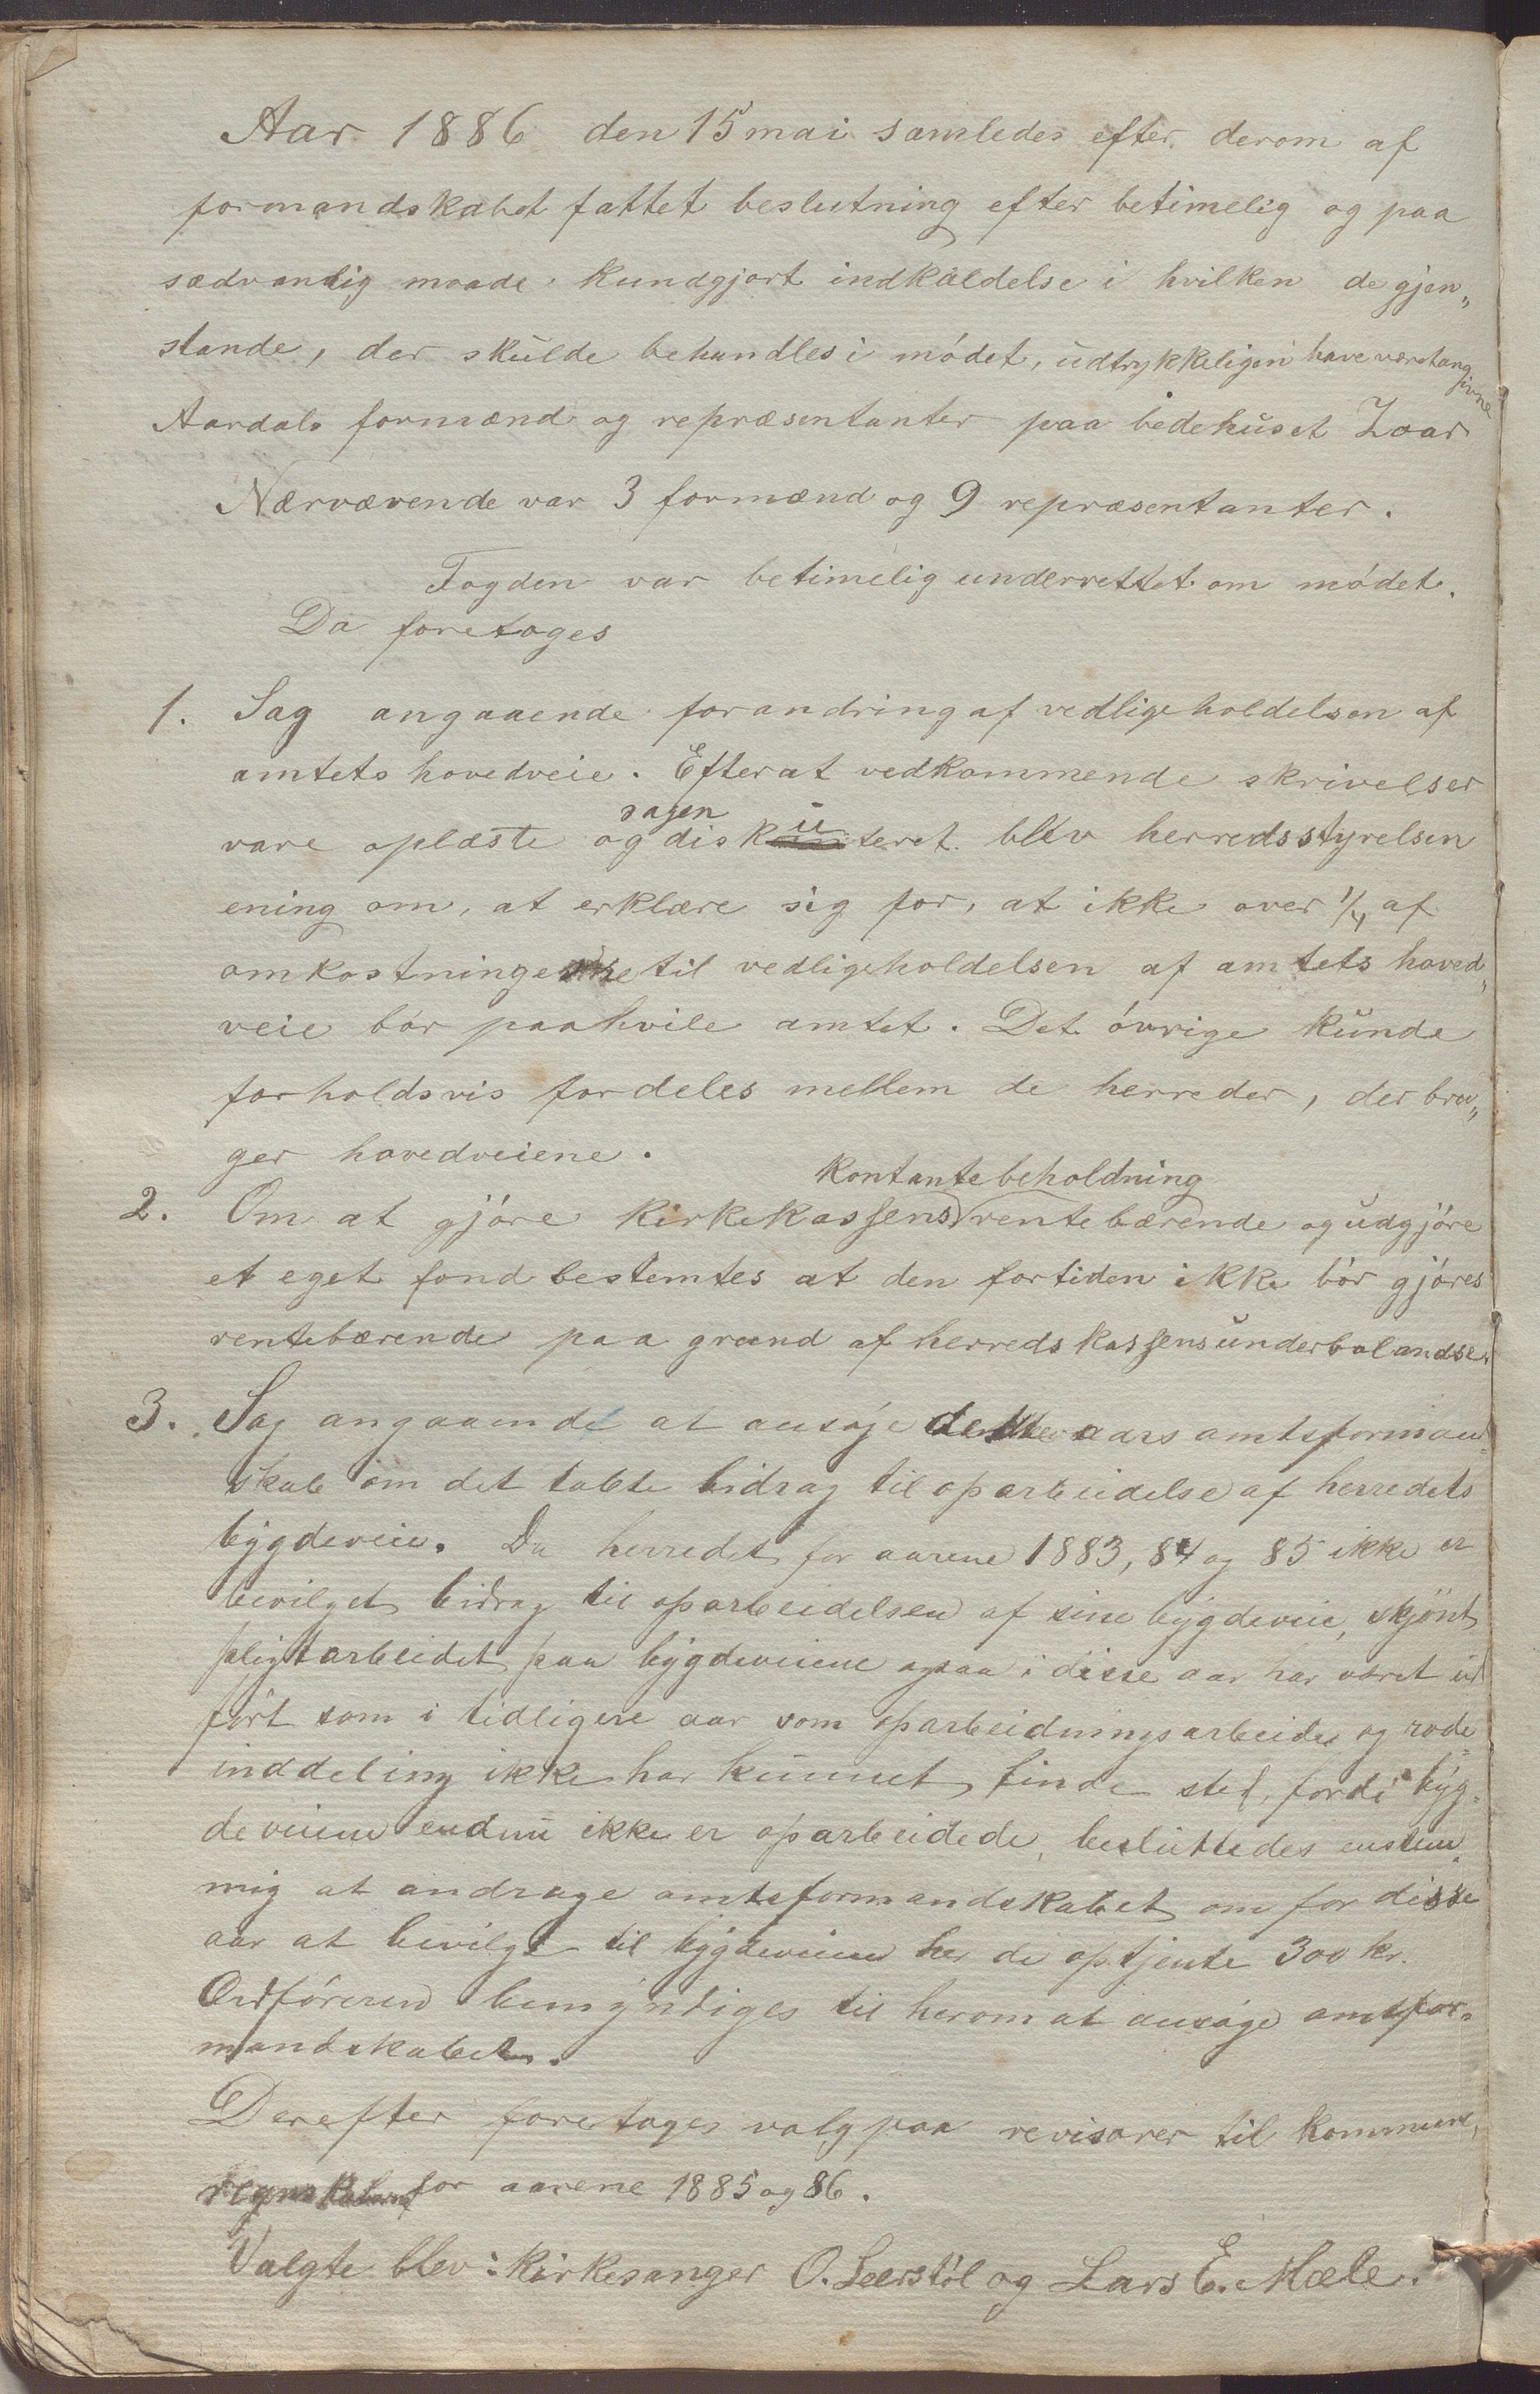 Aar 1886 den 15 mai samledes efter derom af
formandskabet fattet beslutning efter betimelig og paa
sædvanlig maade kundgjort indkaldelse i hvilken de gjen„
stande, der skulde behandles i mødet, udtrykkeligen have været angivne
Aardals formænd og repræsentanter paa bedehuset Zoar
Nærværende var 3 formænd og 9 repræsentanter.
Fogden var betimelig underrettet om mødet.
Da foretoges
1. Sag angaaende forandring af vedligeholdelsen af
amtets hovedveie. Efterat vedkommende skrivelser
vare oplæste og sagen diskuteret blev herredsstyrelsen
ening om, at erklære sig for, at ikke over 1/4 af
omkostningerne til vedligeholdelsen af amtets hoved„
veie bør paahvile amtet. Det øvrige kunde
forholdsvis fordeles mellem de herreder, der bru„
ger hovedveiene.
2. Om at gjøre kirkekassens kontantebeholdning rentebærende og udgjøre
et eget fond bestemtes at den fortiden ikke bør gjøres
rentebærende paa grund af herredskassens underbalandse.
3. Sag angaaende at ansøge dette aars amtsforman„
skab om det tabte bidrag til oparbeidelse af herredets
bygdeveie. Da herredet for aarene 1883, 84 og 85 ikke er
bevilget bidrag til oparbeidelsen af sine bygdeveie, skjønt
pligtarbeidet paa bygdeveiene ogsaa i disse aar har været ud
ført som i tidligere aar som oparbeidningsarbeide og rode
inddeling ikke har kunnet finde sted, fordi byg„
deveiene endnu ikke er oparbeidede, besluttedes enstem„
mig at andrage amtsformandskabet om for disse
aar at bevilge til bygdeveiene her de optjente 300 kr.
Ordføreren bemyndiges til herom at ansøge amtsfor„
mandskabet.
Derefter foretoges valg paa revisorer til kommune„
regnskaberne for aarene 1885 og 86.
Valgte blev: kirkesanger O. Leerstøl og Lars E. Mæle.